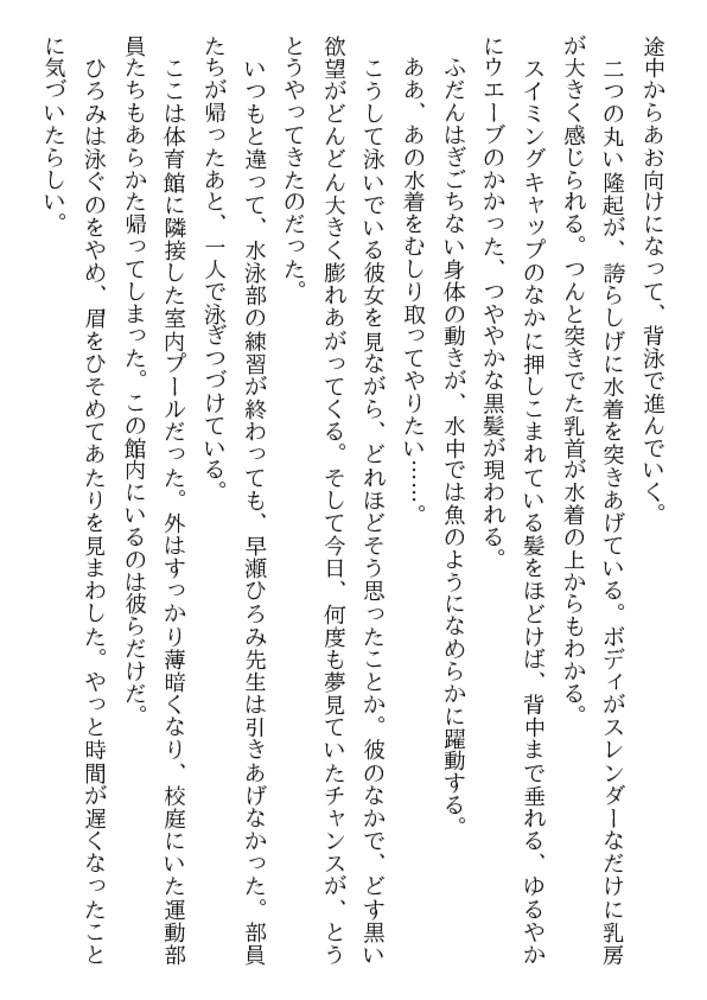 途中からあお向けになって、背泳で進んでいく。
二つの丸い隆起が、誇らしげに水着を突きあげている。ボディがスレンダーなだけに乳房
が大きく感じられる。つんと突きでた乳首が水着の上からもわかる。
スイミングキャップのなかに押しこまれている髪をほどけば、背中まで垂れる、ゆるやか
にウエーブのかかった、つややかな黒髪が現われる。
ふだんはぎごちない身体の動きが、水中では魚のようになめらかに躍動する。
ああ、あの水着をむしり取ってやりたい……。
こうして泳いでいる彼女を見ながら、どれほどそう思ったことか。彼のなかで、どす黒い
欲望がどんどん大きく膨れあがってくる。そして今日、何度も夢見ていたチャンスが、とう
とうやってきたのだった。
いつもと違って、水泳部の練習が終わっても、早瀬ひろみ先生は引きあげなかった。部員
たちが帰ったあと、一人で泳ぎつづけている。
ここは体育館に隣接した室内プールだった。外はすっかり薄暗くなり、校庭にいた運動部
員たちもあらかた帰ってしまった。この館内にいるのは彼らだけだ。
ひろみは泳ぐのをやめ、眉をひそめてあたりを見まわした。やっと時間が遅くなったこと
に気づいたらしい。